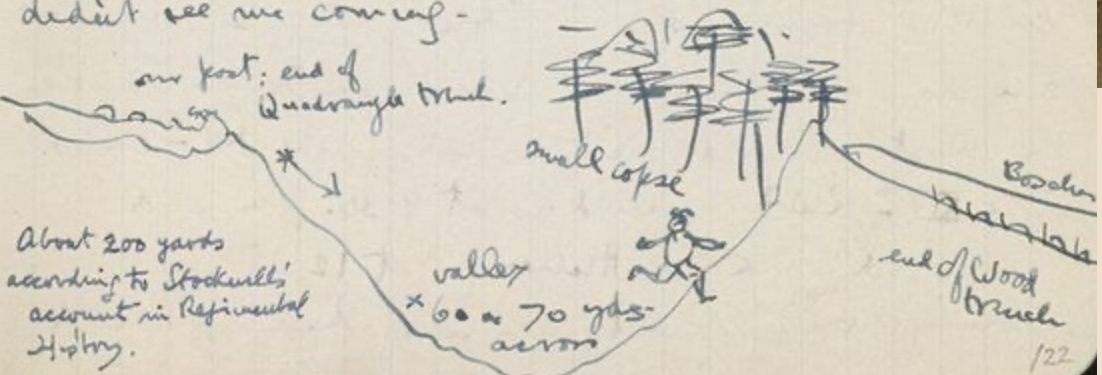 didn't see me coming -
our post: end of
Quadrangle trench.
small copse
Bosches
About 200 yards
according to Stockwell's
account in Regimental
History.
valley
× 60 or 70 yds.
across
end of Wood
trench
/22